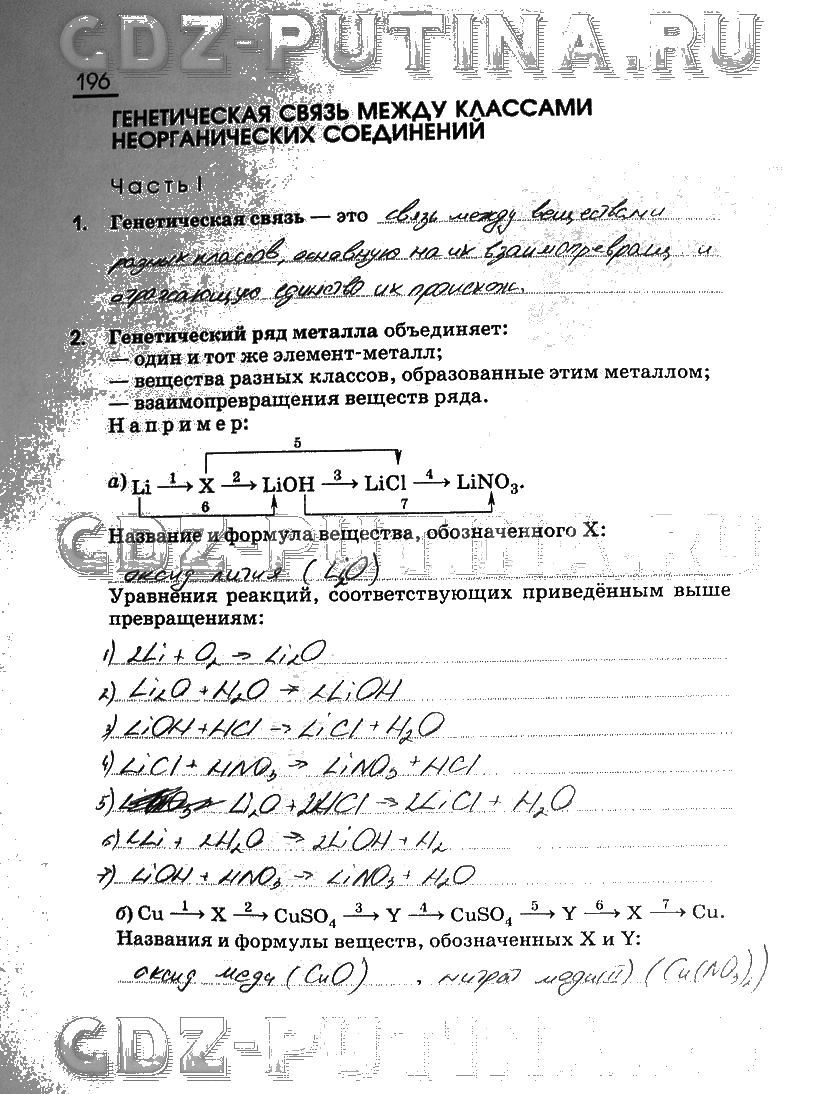 GDZ-PUTINA.RU
196
ГЕНЕТИЧЕСКАЯ СВЯЗЬ МЕЖДУ КЛАССАМИ
НЕОРГАНИЧЕСКИХ СОЕДИНЕНИЙ
Часть I
1. Генетическая связь — это связь между веществами
разных классов, основную на их взаимопревращ и
отражающую единство их происхож.
2. Генетический ряд металла объединяет:
— один и тот же элемент-металл;
— вещества разных классов, образованные этим металлом;
— взаимопревращения веществ ряда.
Например:
5
а) Li 1→ X 2→ LiOH 3→ LiCl 4→ LiNO₃.
6 7
GDZ-PUTINA.RU
Название и формула вещества, обозначенного X:
оксид лития (Li₂O)
Уравнения реакций, соответствующих приведённым выше
превращениям:
1) 2Li + O₂ → Li₂O
2) Li₂O + H₂O → 2LiOH
3) LiOH + HCl → LiCl + H₂O
4) LiCl + HNO₃ → LiNO₃ + HCl
5) Li₂O + 2HCl → 2LiCl + H₂O
6) 2Li + 2H₂O → 2LiOH + H₂
7) LiOH + HNO₃ → LiNO₃ + H₂O
б) Cu 1→ X 2→ CuSO₄ 3→ Y 4→ CuSO₄ 5→ Y 6→ X 7→ Cu.
Названия и формулы веществ, обозначенных X и Y:
оксид меди (CuO) , нитрат меди(II) (Cu(NO₃)₂)
GDZ-PUTINA.RU